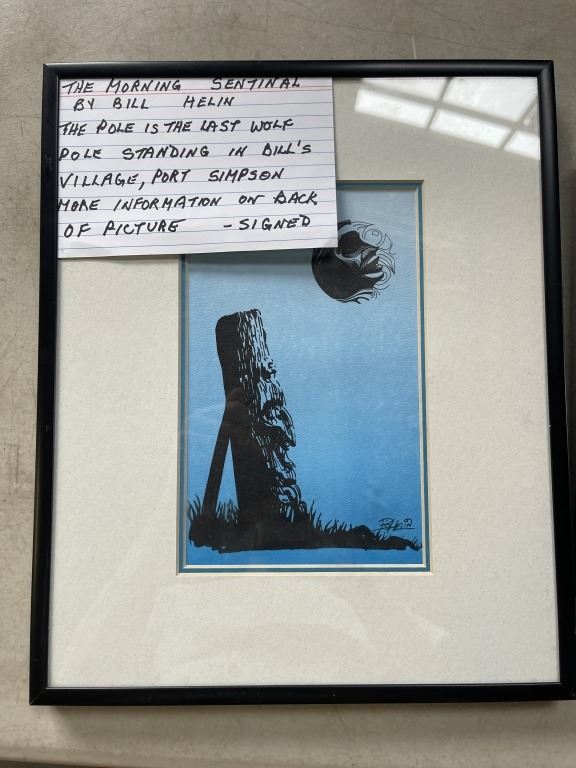 THE MORNING SENTINAL
BY BILL HELIN
THE POLE IS THE LAST WOLF
POLE STANDING IN BILL'S
VILLAGE, PORT SIMPSON
MORE INFORMATION ON BACK
OF PICTURE - SIGNED